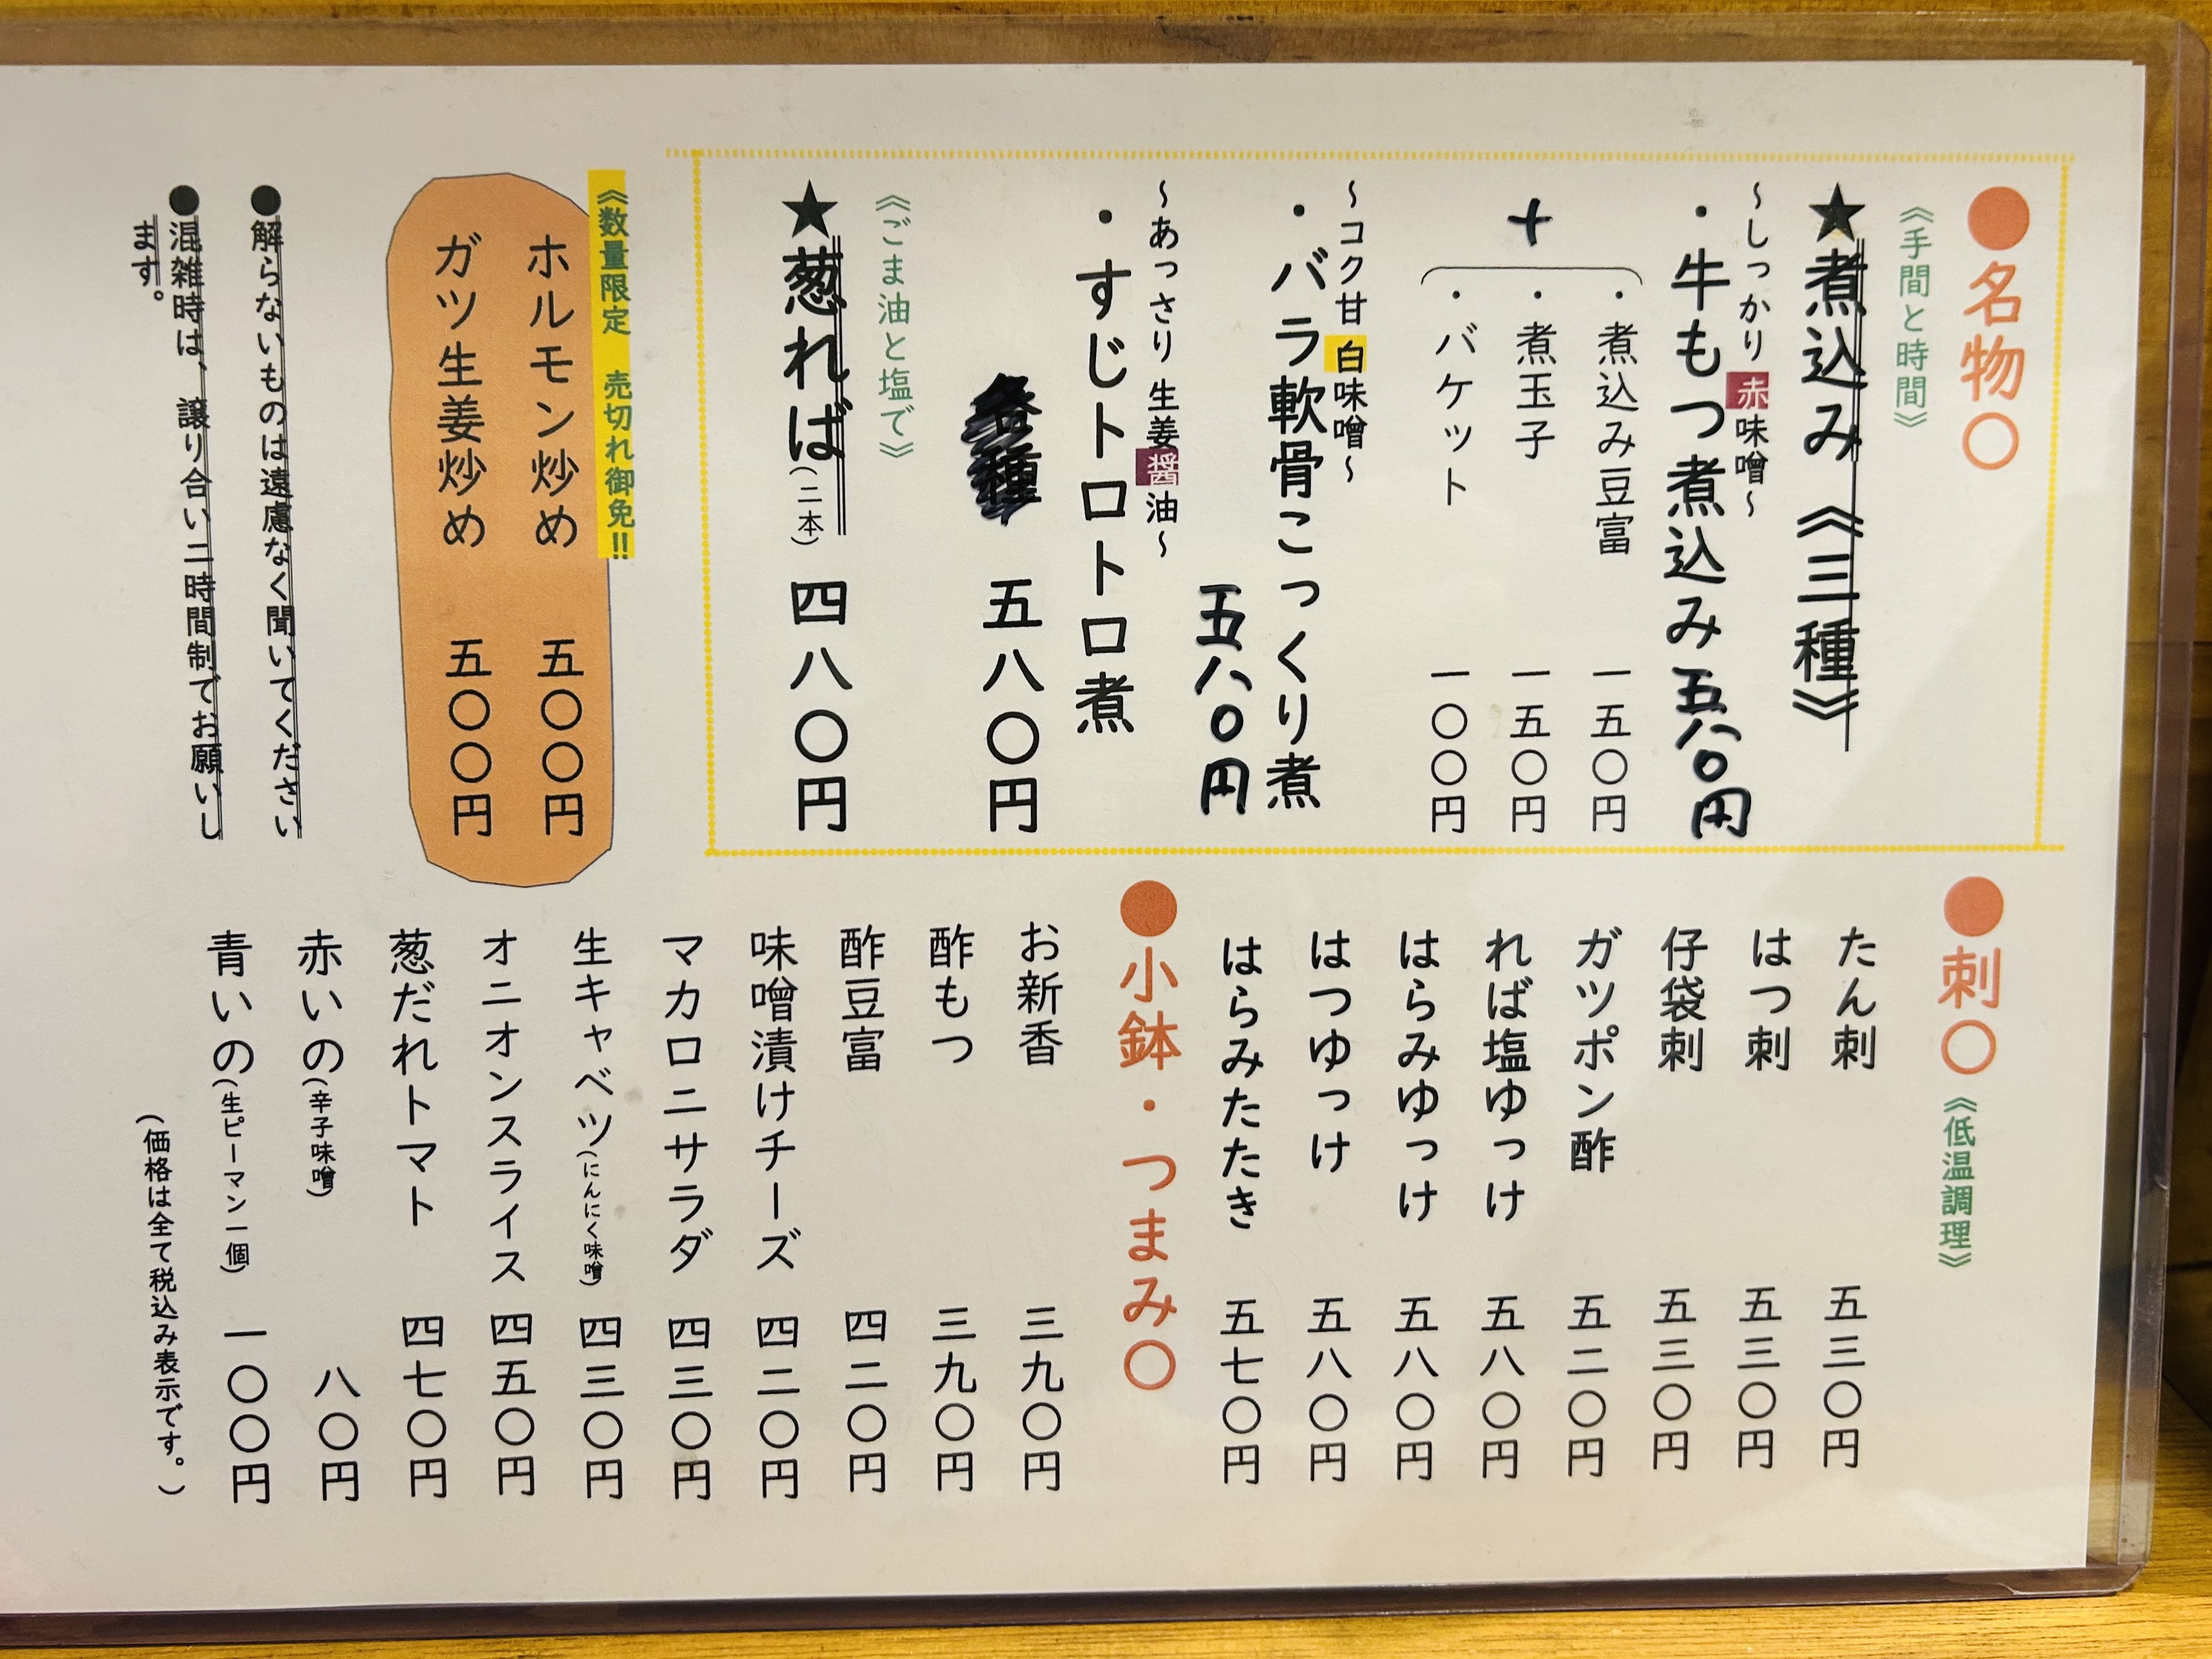 ●名物〇
《手間と時間》
★煮込み《三種》
～しっかり赤味噌～
・牛もつ煮込み 五八〇円
＋
・煮込み豆富 一五〇円
・煮玉子 一五〇円
・バケット 一〇〇円
～コク甘白味噌～
・バラ軟骨こっくり煮
五八〇円
～あっさり生姜醤油～
・すじトロトロ煮
各種 五八〇円
《ごま油と塩で》
★葱れば(二本) 四八〇円
《数量限定 売切れ御免!!
ホルモン炒め 五〇〇円
ガツ生姜炒め 五〇〇円
●解らないものは遠慮なく聞いてください
●混雑時は、譲り合い二時間制でお願いし
ます。
●刺〇《低温調理》
たん刺 五三〇円
はつ刺 五三〇円
仔袋刺 五三〇円
ガツポン酢 五二〇円
れば塩ゆっけ 五八〇円
はらみゆっけ 五八〇円
はつゆっけ 五八〇円
はらみたたき 五七〇円
●小鉢・つまみ〇
お新香 三九〇円
酢もつ 三九〇円
酢豆富 四二〇円
味噌漬けチーズ 四二〇円
マカロニサラダ 四三〇円
生キャベツ(にんにく味噌) 四三〇円
オニオンスライス 四五〇円
葱だれトマト 四七〇円
赤いの(辛子味噌) 八〇円
青いの(生ピーマン一個) 一〇〇円
(価格は全て税込み表示です。)